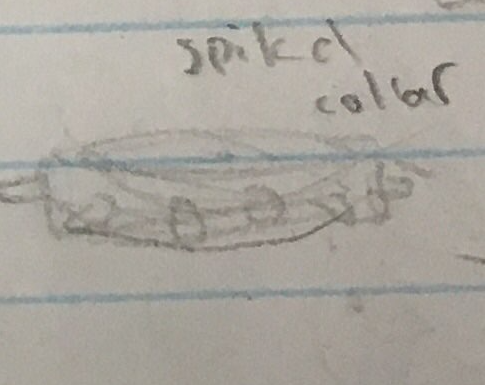 spikd
collar